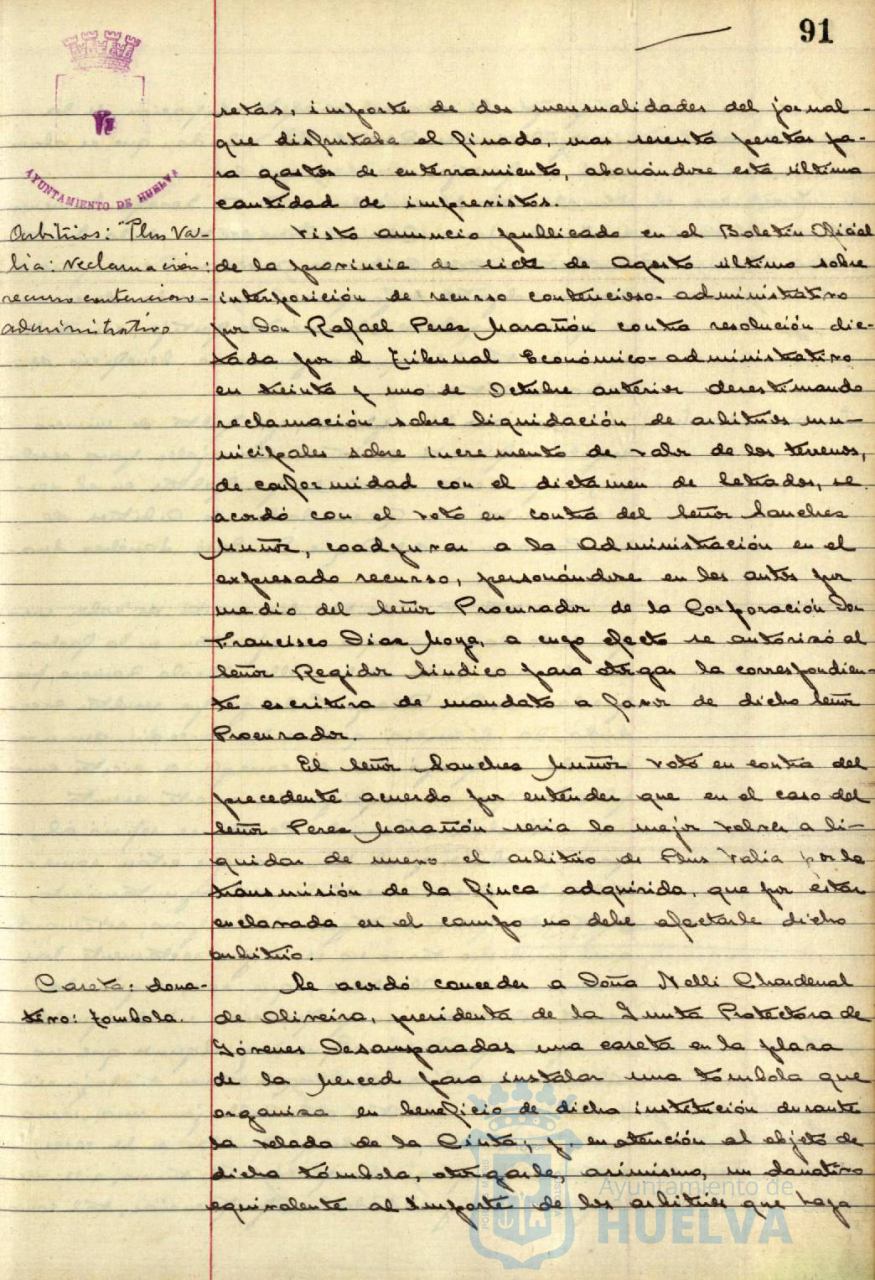 91
AYUNTAMIENTO DE HUELVA
setas, importe de dos mensualidades del jornal
que disfrutaba el finado, mas sesenta pesetas pa-
ra gastos de enterramiento, abonándose esta última
cantidad de imprevistos.
Arbitrios: "Plus Va-
lia: reclamación:
recurso contencioso-
administrativo
Visto anuncio publicado en el Boletin Oficial
de la provincia de siete de Agosto último sobre
interposición de recurso contencioso-administrativo
por Don Rafael Perez Marañón contra resolución dic-
tada por el Tribunal Económico-administrativo
en treinta y uno de Octubre anterior desestimando
reclamación sobre liquidación de arbitrios mu-
nicipales sobre incremento de valor de los terrenos,
de conformidad con el dictamen de Letrados, se
acordó con el voto en contra del Señor Sanchez
Muñoz, coadyuvar a la Administración en el
expresado recurso, personándose en los autos por
medio del Señor Procurador de la Corporación Don
Francisco Diaz Moya, a cuyo efecto se autorizó al
Señor Regidor Sindico para otorgar la correspondien-
te escritura de mandato a favor de dicho Señor
Procurador.
El Señor Sanchez Muñoz votó en contra del
precedente acuerdo por entender que en el caso del
Señor Perez Marañón seria lo mejor volver a li-
quidar de nuevo el arbitrio de Plus Valia por la
transmisión de la finca adquirida, que por estar
enclavada en el campo no debe afectarle dicho
arbitrio.
Caseta: dona-
tivo: tombola.
Se acordó conceder a Doña Nelli Chardenal
de Oliveira, presidenta de la Junta Protectora de
Jóvenes Desamparadas una caseta en la plaza
de la Merced para instalar una tómbola que
organiza en beneficio de dicha institución durante
la velada de la Cinta; y, en atención al objeto de
dicha tómbola, otorgarle, asimismo, un donativo
equivalente al importe de los arbitrios que haya
Ayuntamiento de
HUELVA